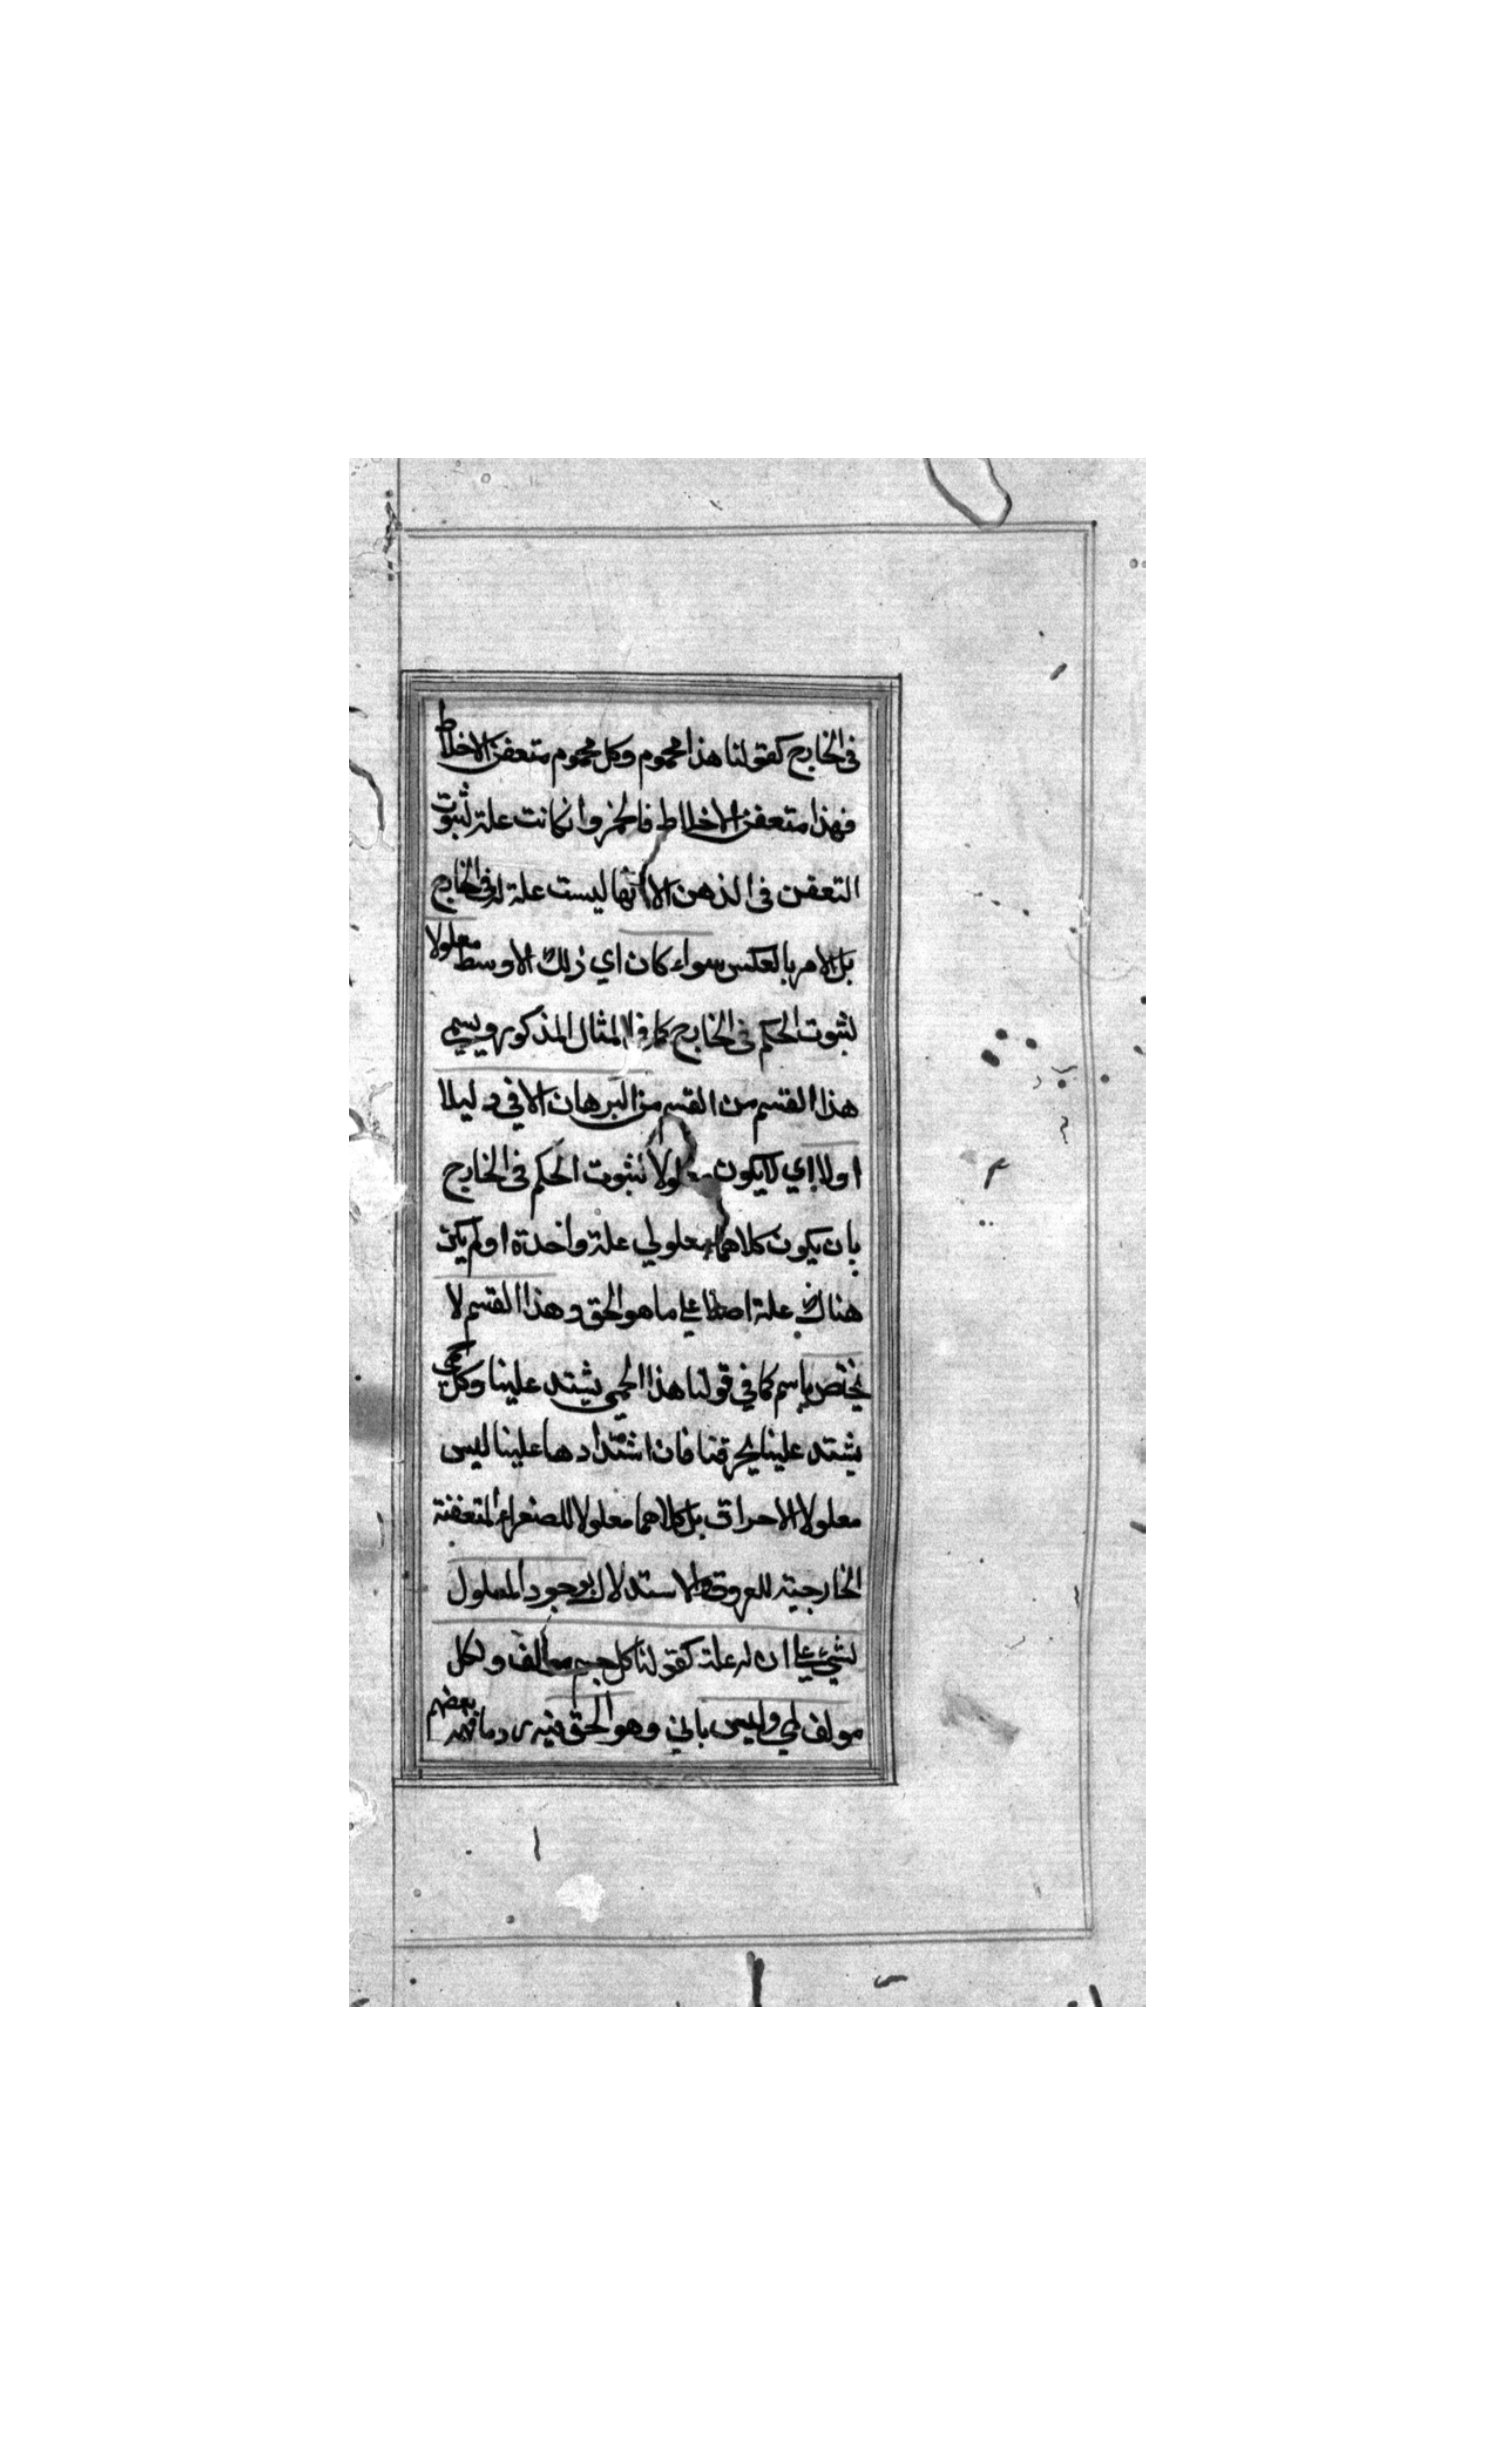 فى الخارج كقولنا هذا محموم وكل محموم متعفن الاخلاط
فهذا متعفن الاخلاط فالحمى وان كانت علة لثبوت
التعفن فى الذهن الا انها ليست علة له فى الخارج
بل الامر بالعكس سواء كان اي ذلك الاوسط معلولا
لثبوت الحكم فى الخارج كما فى المثال المذكور ويسمى
هذا القسم من القسم من البرهان الاني دليلا
اولا اي لا يكون معلولا لثبوت الحكم فى الخارج
بان يكون كلاهما معلولي علة واحدة اولم يكن
هناك علة اصلا علي ما هو الحق وهذا القسم لا
يختص باسم كما في قولنا هذا الحمي يشتد علينا وكل حمى
يشتد علينا يحرقنا فان اشتدادها علينا ليس
معلولا الاحراق بل كلاهما معلولا للصفراء المتعفنة
الخارجية للعروق والاستدلال بوجود المعلول
لشيئ علي ان له علة كقولنا كل جسم مؤلف ولكل
مولف لمي وليس باني وهو الحق فيه رد ما فهمه بعضهم